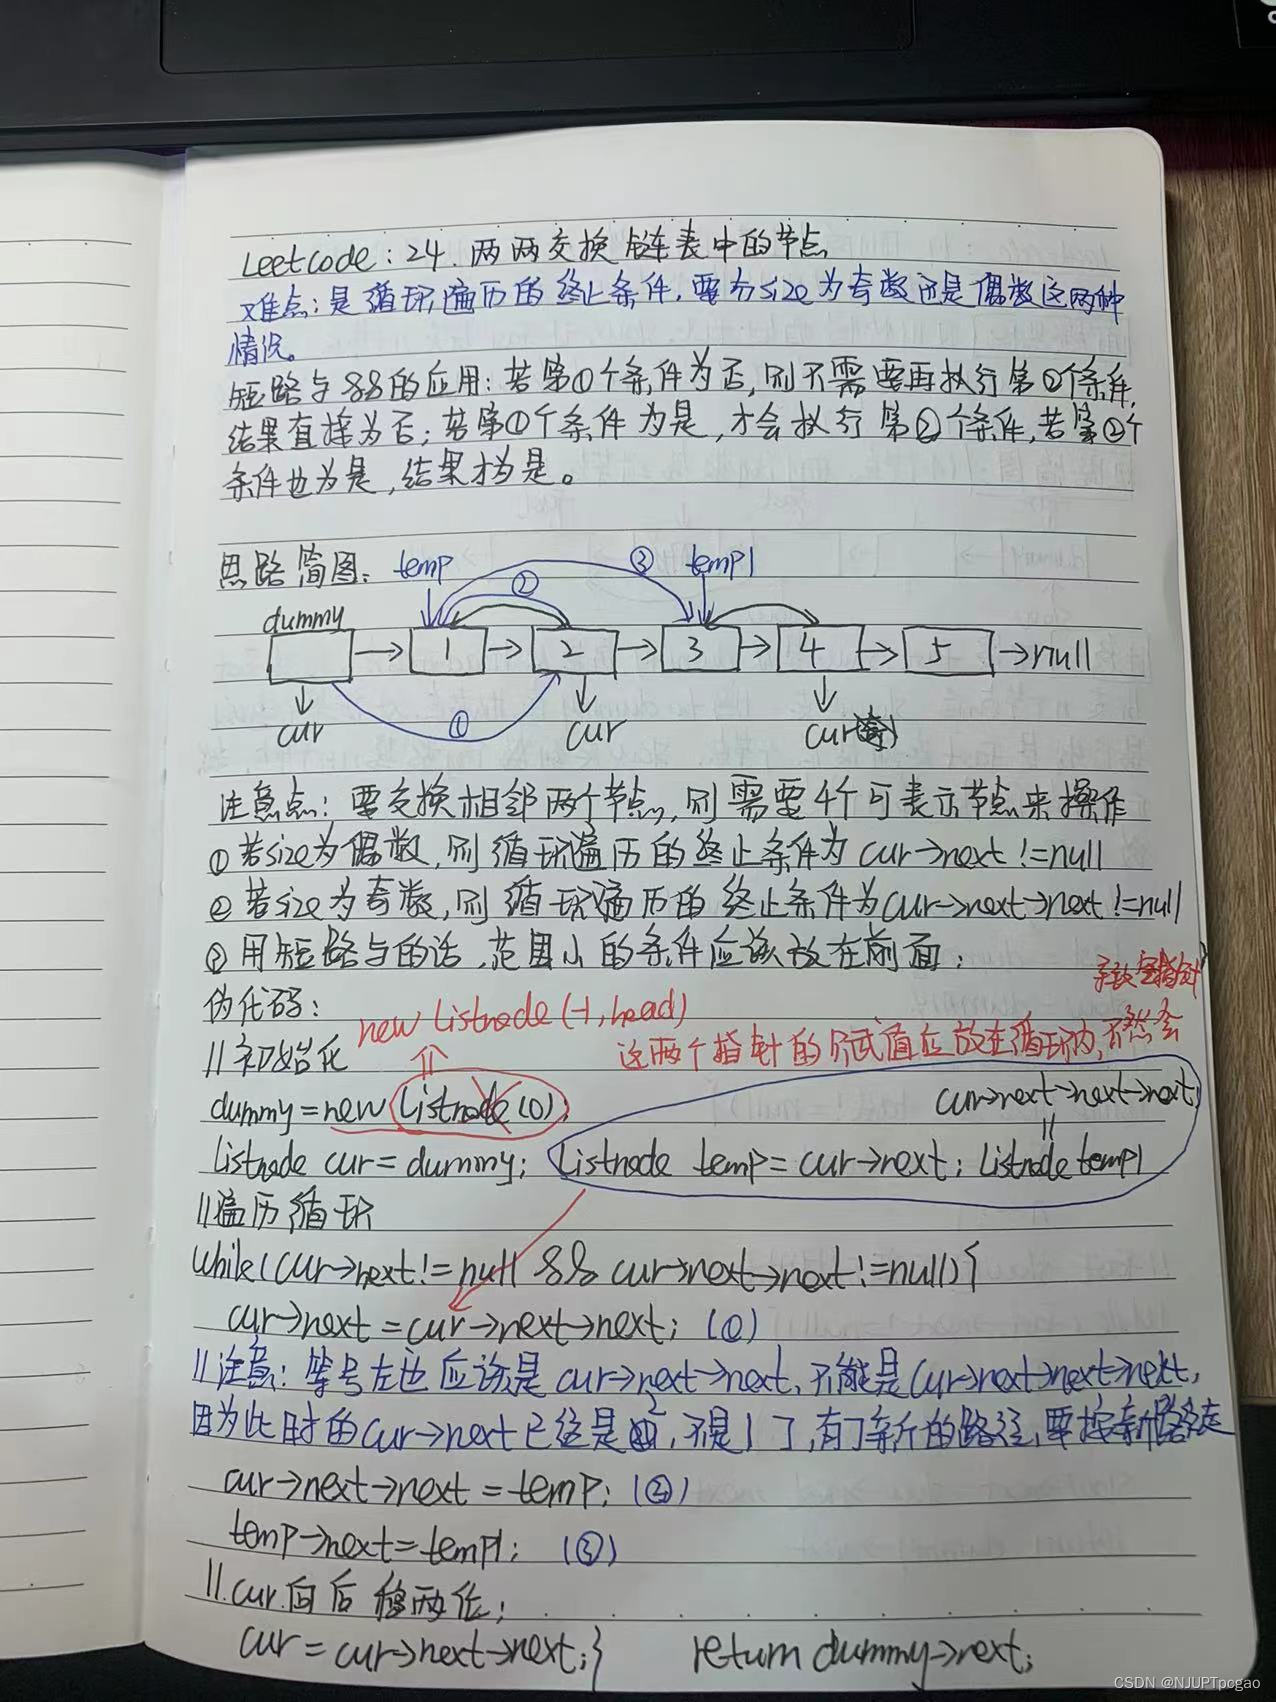 Leetcode：24. 两两交换链表中的节点
难点：是循环遍历的终止条件，要分size为奇数还是偶数这两种
情况。
短路与&&的应用：若第①个条件为否，则不需要再执行第②个条件，
结果直接为否；若第①个条件为是，才会执行第②个条件，若第②个
条件也为是，结果才为是。
思路简图： temp ② ③ temp1
dummy
1 2 3 4 5 null
cur ① cur cur(奇)
注意点：要交换相邻两个节点，则需要4个可表示节点来操作
①若size为偶数，则循环遍历的终止条件为cur->next !=null
②若size为奇数，则循环遍历的终止条件为cur->next->next !=null
③用短路与的话，范围小的条件应该放在前面；
伪代码：
new Listnode(-1,head)
空指针
这两个指针的赋值应放在循环内，不然会
//初始化
cur->next->next->next
dummy=new Listnode(0);
Listnode cur=dummy; Listnode temp=cur->next; Listnode temp1
//遍历循环
while(cur->next!=null && cur->next->next!=null){
cur->next=cur->next->next; (①)
//注意：等号左边应该是cur->next->next，不能是cur->next->next->next，
因为此时的cur->next已经是2，不是1了，有了新的路径，要按新路径走
cur->next->next=temp; (②)
temp->next=temp1; (③)
//cur向后移两位；
cur=cur->next->next;} return dummy->next;
CSDN @NJUPTpcgao